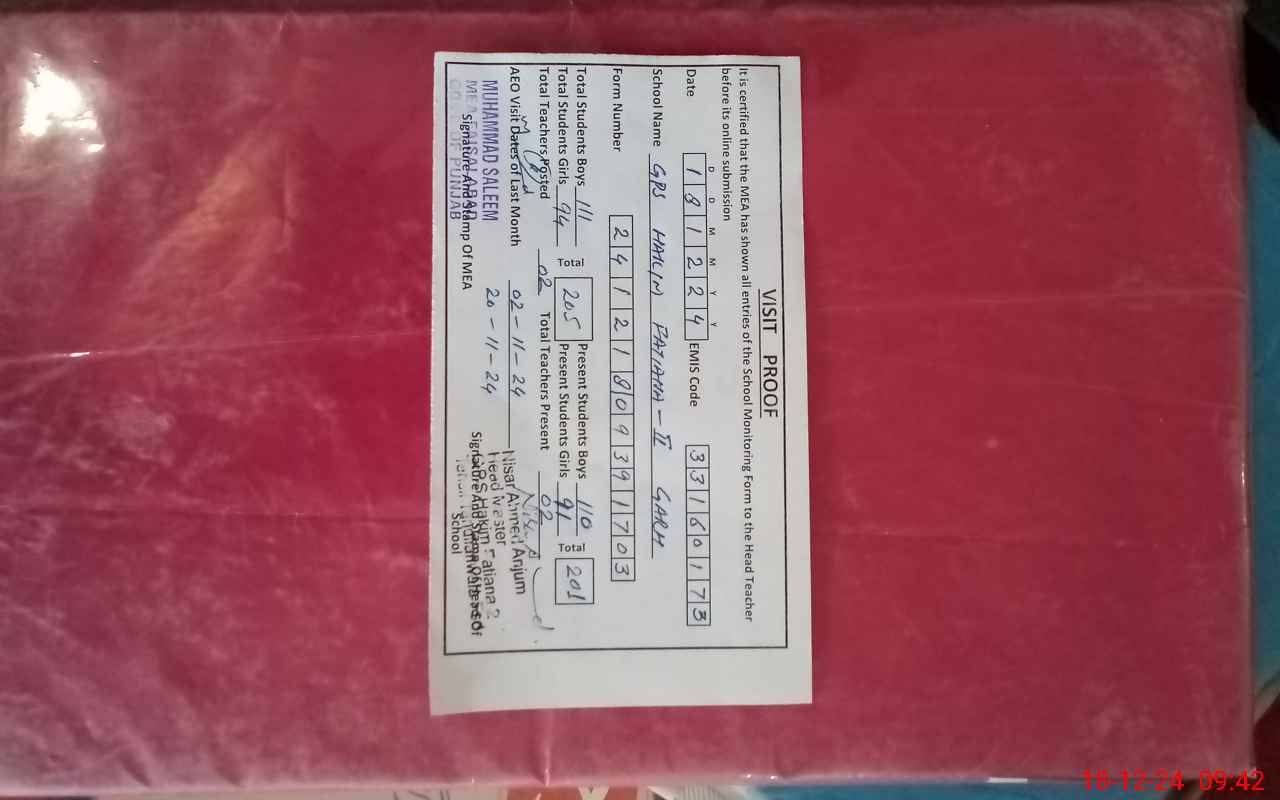 VISIT PROOF
It is certified that the MEA has shown all entries of the School Monitoring Form to the Head Teacher
before its online submission
D D M M Y Y
Date 1 8 1 2 2 4 EMIS Code 3 3 1 6 0 1 7 3
School Name GPS HAKIM FATIANA - II GARH
Form Number 2 4 1 2 1 8 0 9 3 9 1 7 0 3
Total Students Boys 111 Total 205 Present Students Boys 110 Total 201
Total Students Girls 94 Present Students Girls 91
Total Teachers Posted 02 Total Teachers Present 02
AEO Visit Dates of Last Month 02-11-24
20-11-24
MUHAMMAD SALEEM
MEA FAISALABAD
GOVT. OF PUNJAB
Signature And Stamp Of MEA
Nisar Ahmed Anjum
Head Master
GPS Hakim Fatiana 2
Signature And Stamp Of Head Of
School
18-12-24 09:42